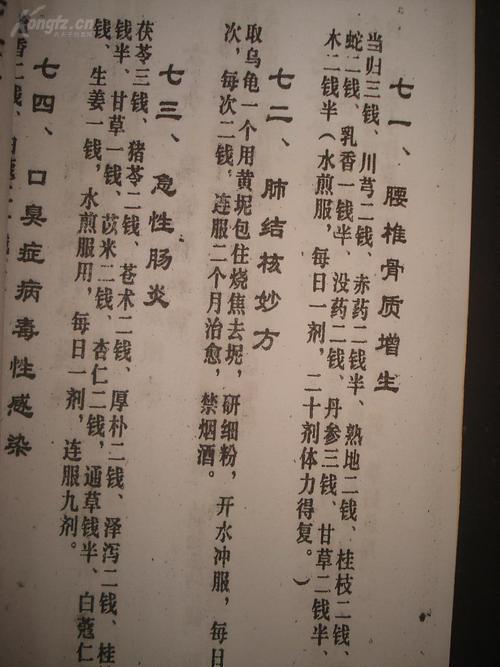 七一、腰椎骨质增生
当归三钱、川芎二钱、赤药二钱半、熟地二钱、桂枝二钱、
蛇二钱、乳香一钱半、没药二钱、丹参三钱、甘草二钱半、
木二钱半（水煎服，每日一剂，二十剂体力得复。）
七二、肺结核妙方
取乌龟一个用黄坭包住烧焦去坭，研细粉，开水冲服，每日
次，每次二钱，连服二个月治愈，禁烟酒。
七三、急性肠炎
茯苓三钱、猪苓二钱、苍术二钱、厚朴二钱、泽泻二钱、桂
钱半、甘草一钱、苡米二钱、杏仁二钱，通草钱半、白蔻仁
钱、生姜一钱，水煎服用，每日一剂，连服九剂。
七四、口臭症病毒性感染
香二钱、白蔻
Kongfz.cn